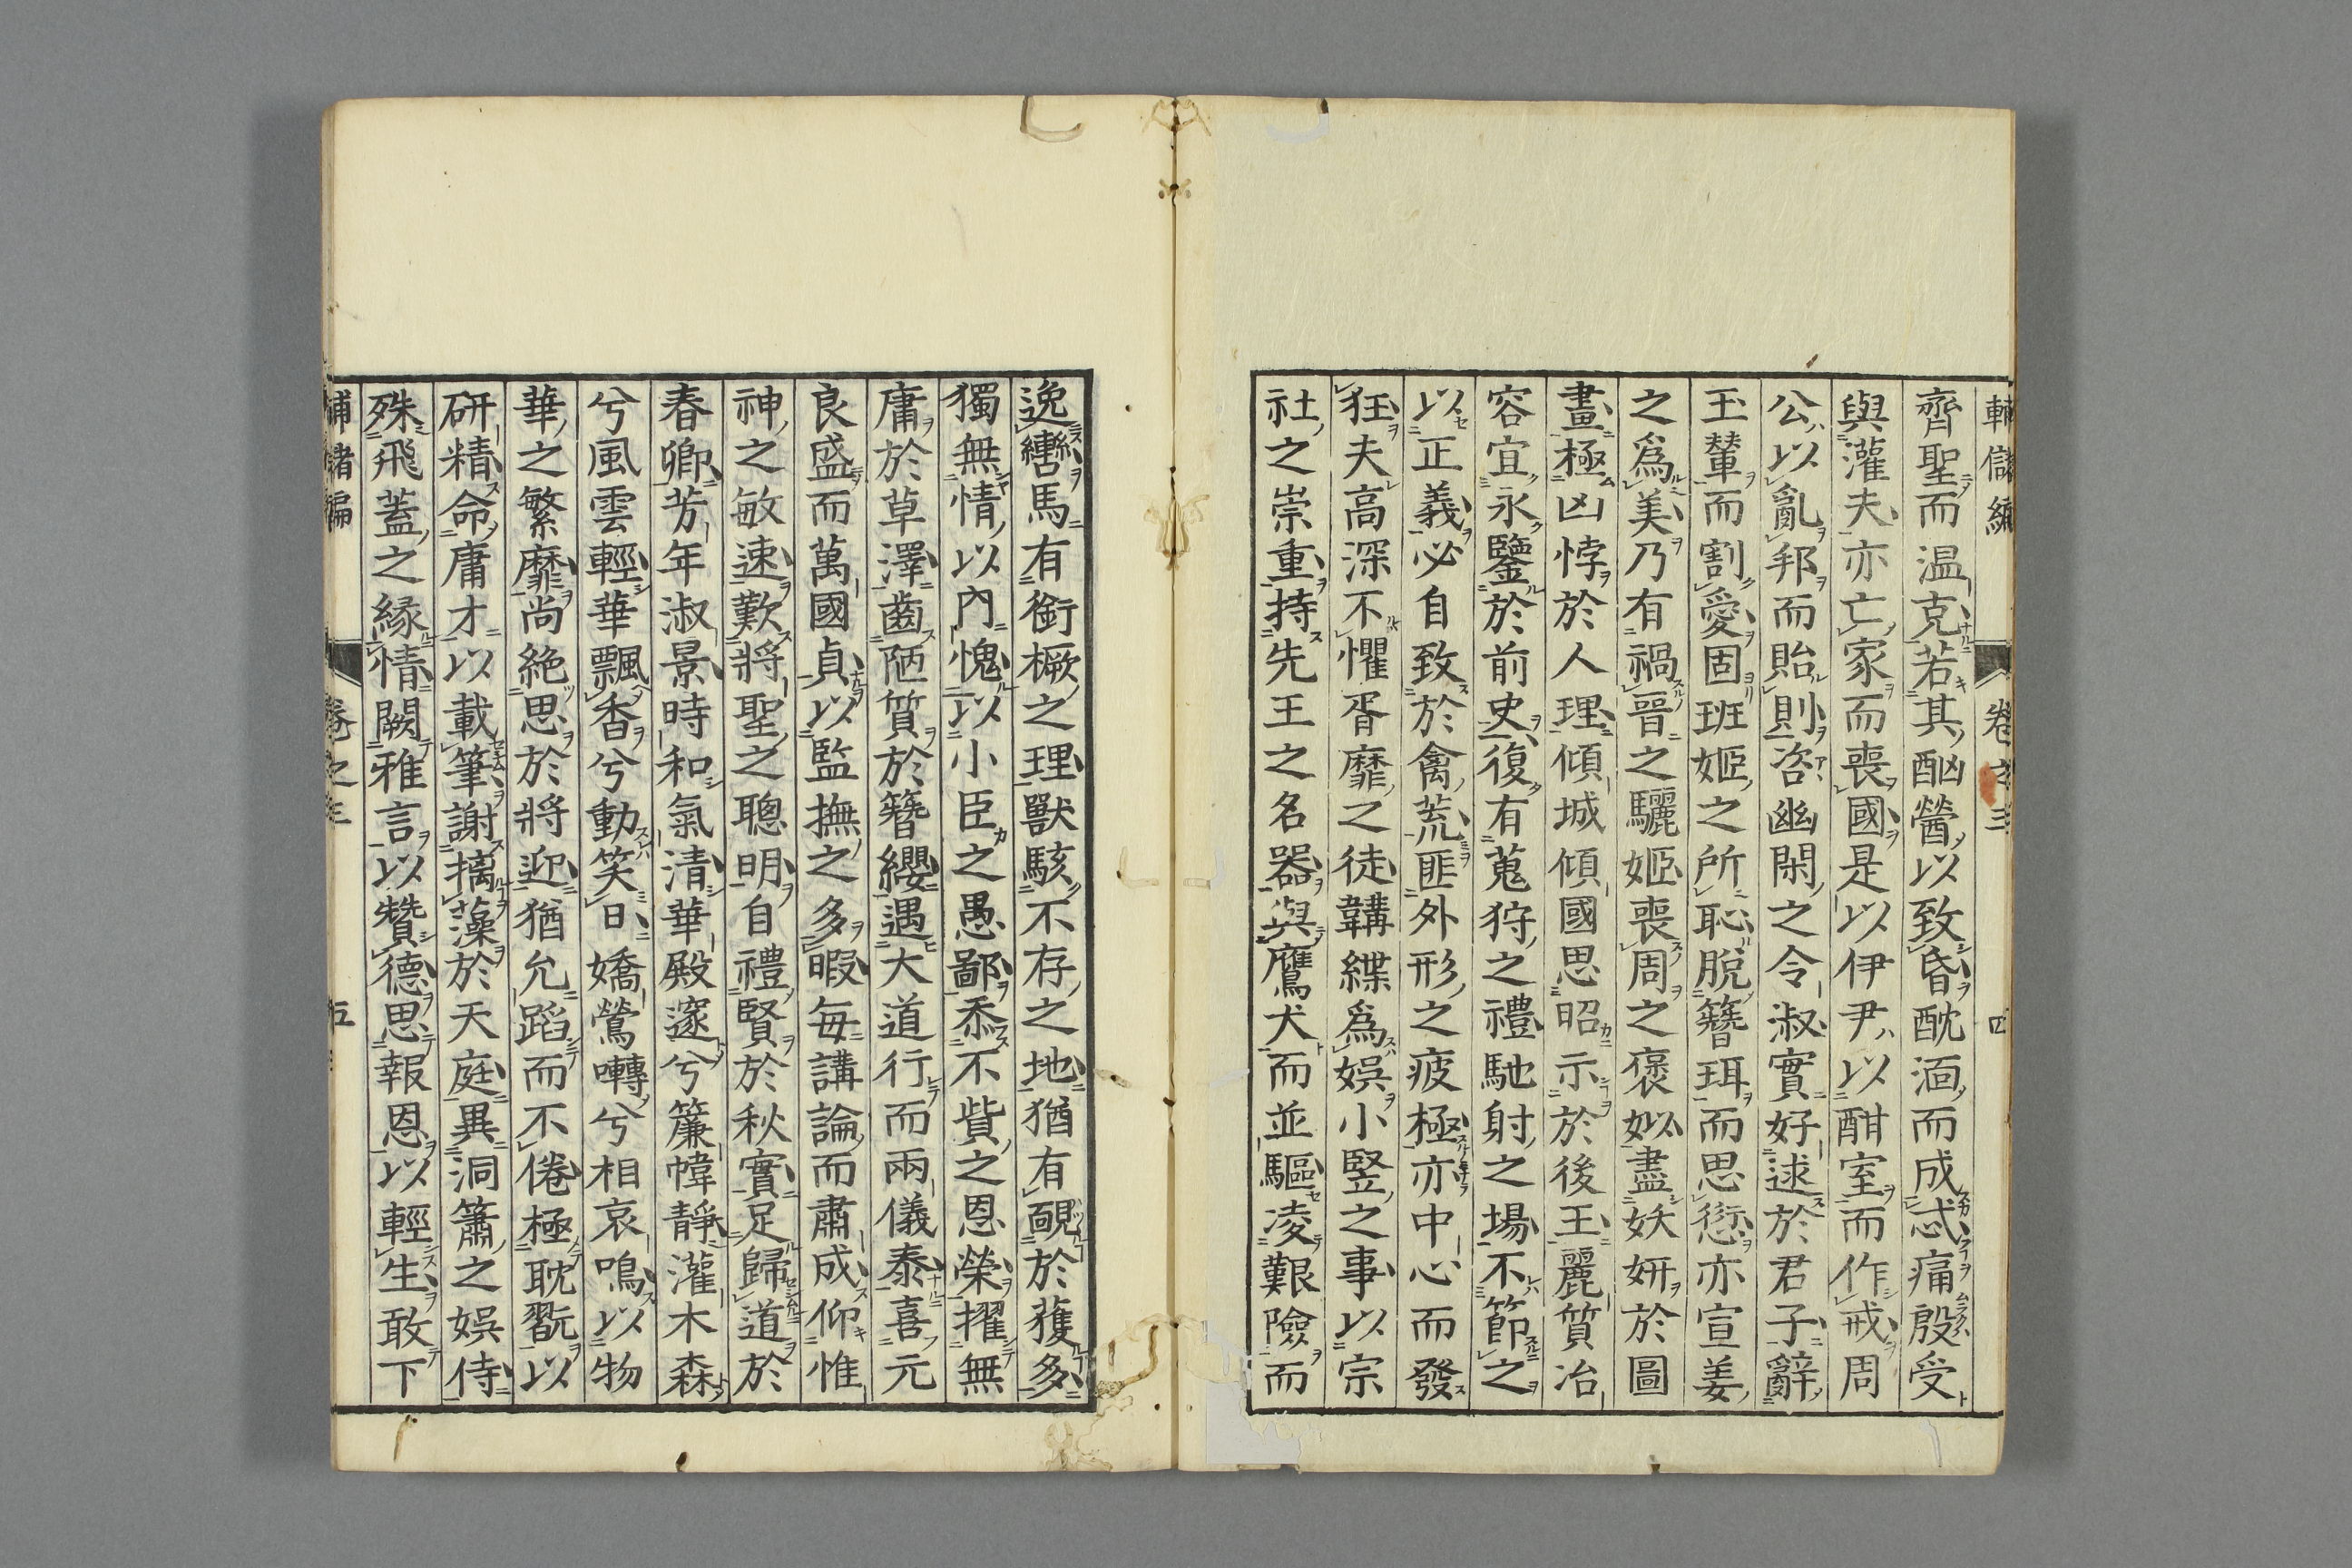 輔儲編 卷之三 四
齊聖而温克若其酗醟以致昏酖湎而成忒痛殷受
與灌夫亦亡家而喪國是以伊尹以酣室而作戒周
公以亂邦而貽則咨幽閑之令淑實好逑於君子辭
玉輦而割愛固班姬之所恥脫簪珥而思愆亦宣姜
之爲美乃有禍晉之驪姬喪周之褒姒盡妖妍於圖
畫極凶悖於人理傾城傾國思昭示於後王麗質冶
容宜永鑒於前史復有蒐狩之禮馳射之場不節之
以正義必自致於禽荒匪外形之疲極亦中心而發
狂夫高深不懼胥靡之徒韝緤爲娯小竪之事以宗
社之崇重持先王之名器與鷹犬而並驅凌艱險而
逸轡馬有銜橛之理獸駭不存之地猶有靦於獲多
獨無情以內愧以小臣之愚鄙忝不貲之恩榮擢無
庸於草澤齒陋質於簪纓遇大道行而兩儀泰喜元
良盛而萬國貞以監撫之多暇每講論而肅成仰惟
神之敏速歎將聖之聰明自禮賢於秋實足歸道於
春卿芳年淑景時和氣清華殿邃兮簾幃靜灌木森
兮風雲輕華飄香兮動笑日嬌鶯囀兮相哀鳴以物
華之繁靡尚絶思於將迎猶允蹈而不倦極耽翫以
研精命庸才以載筆謝摛藻於天庭異洞簫之娯侍
殊飛蓋之縁情闕雅言以贊德思報恩以輕生敢下
輔儲編 卷之三 五